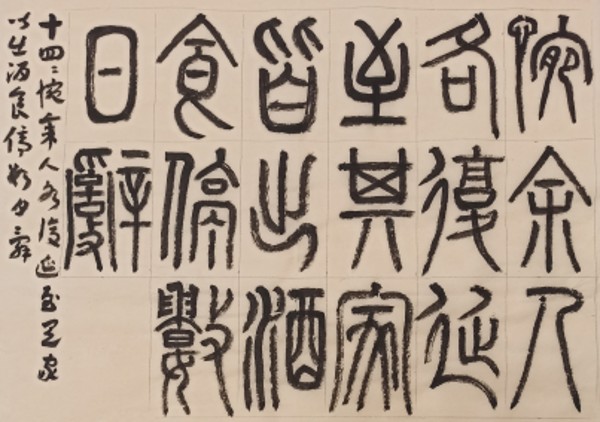 惋余人
各復延
至其家
皆出酒
食停數
日辭
十四：惋余人各復延至其家
皆出酒食停數日辭